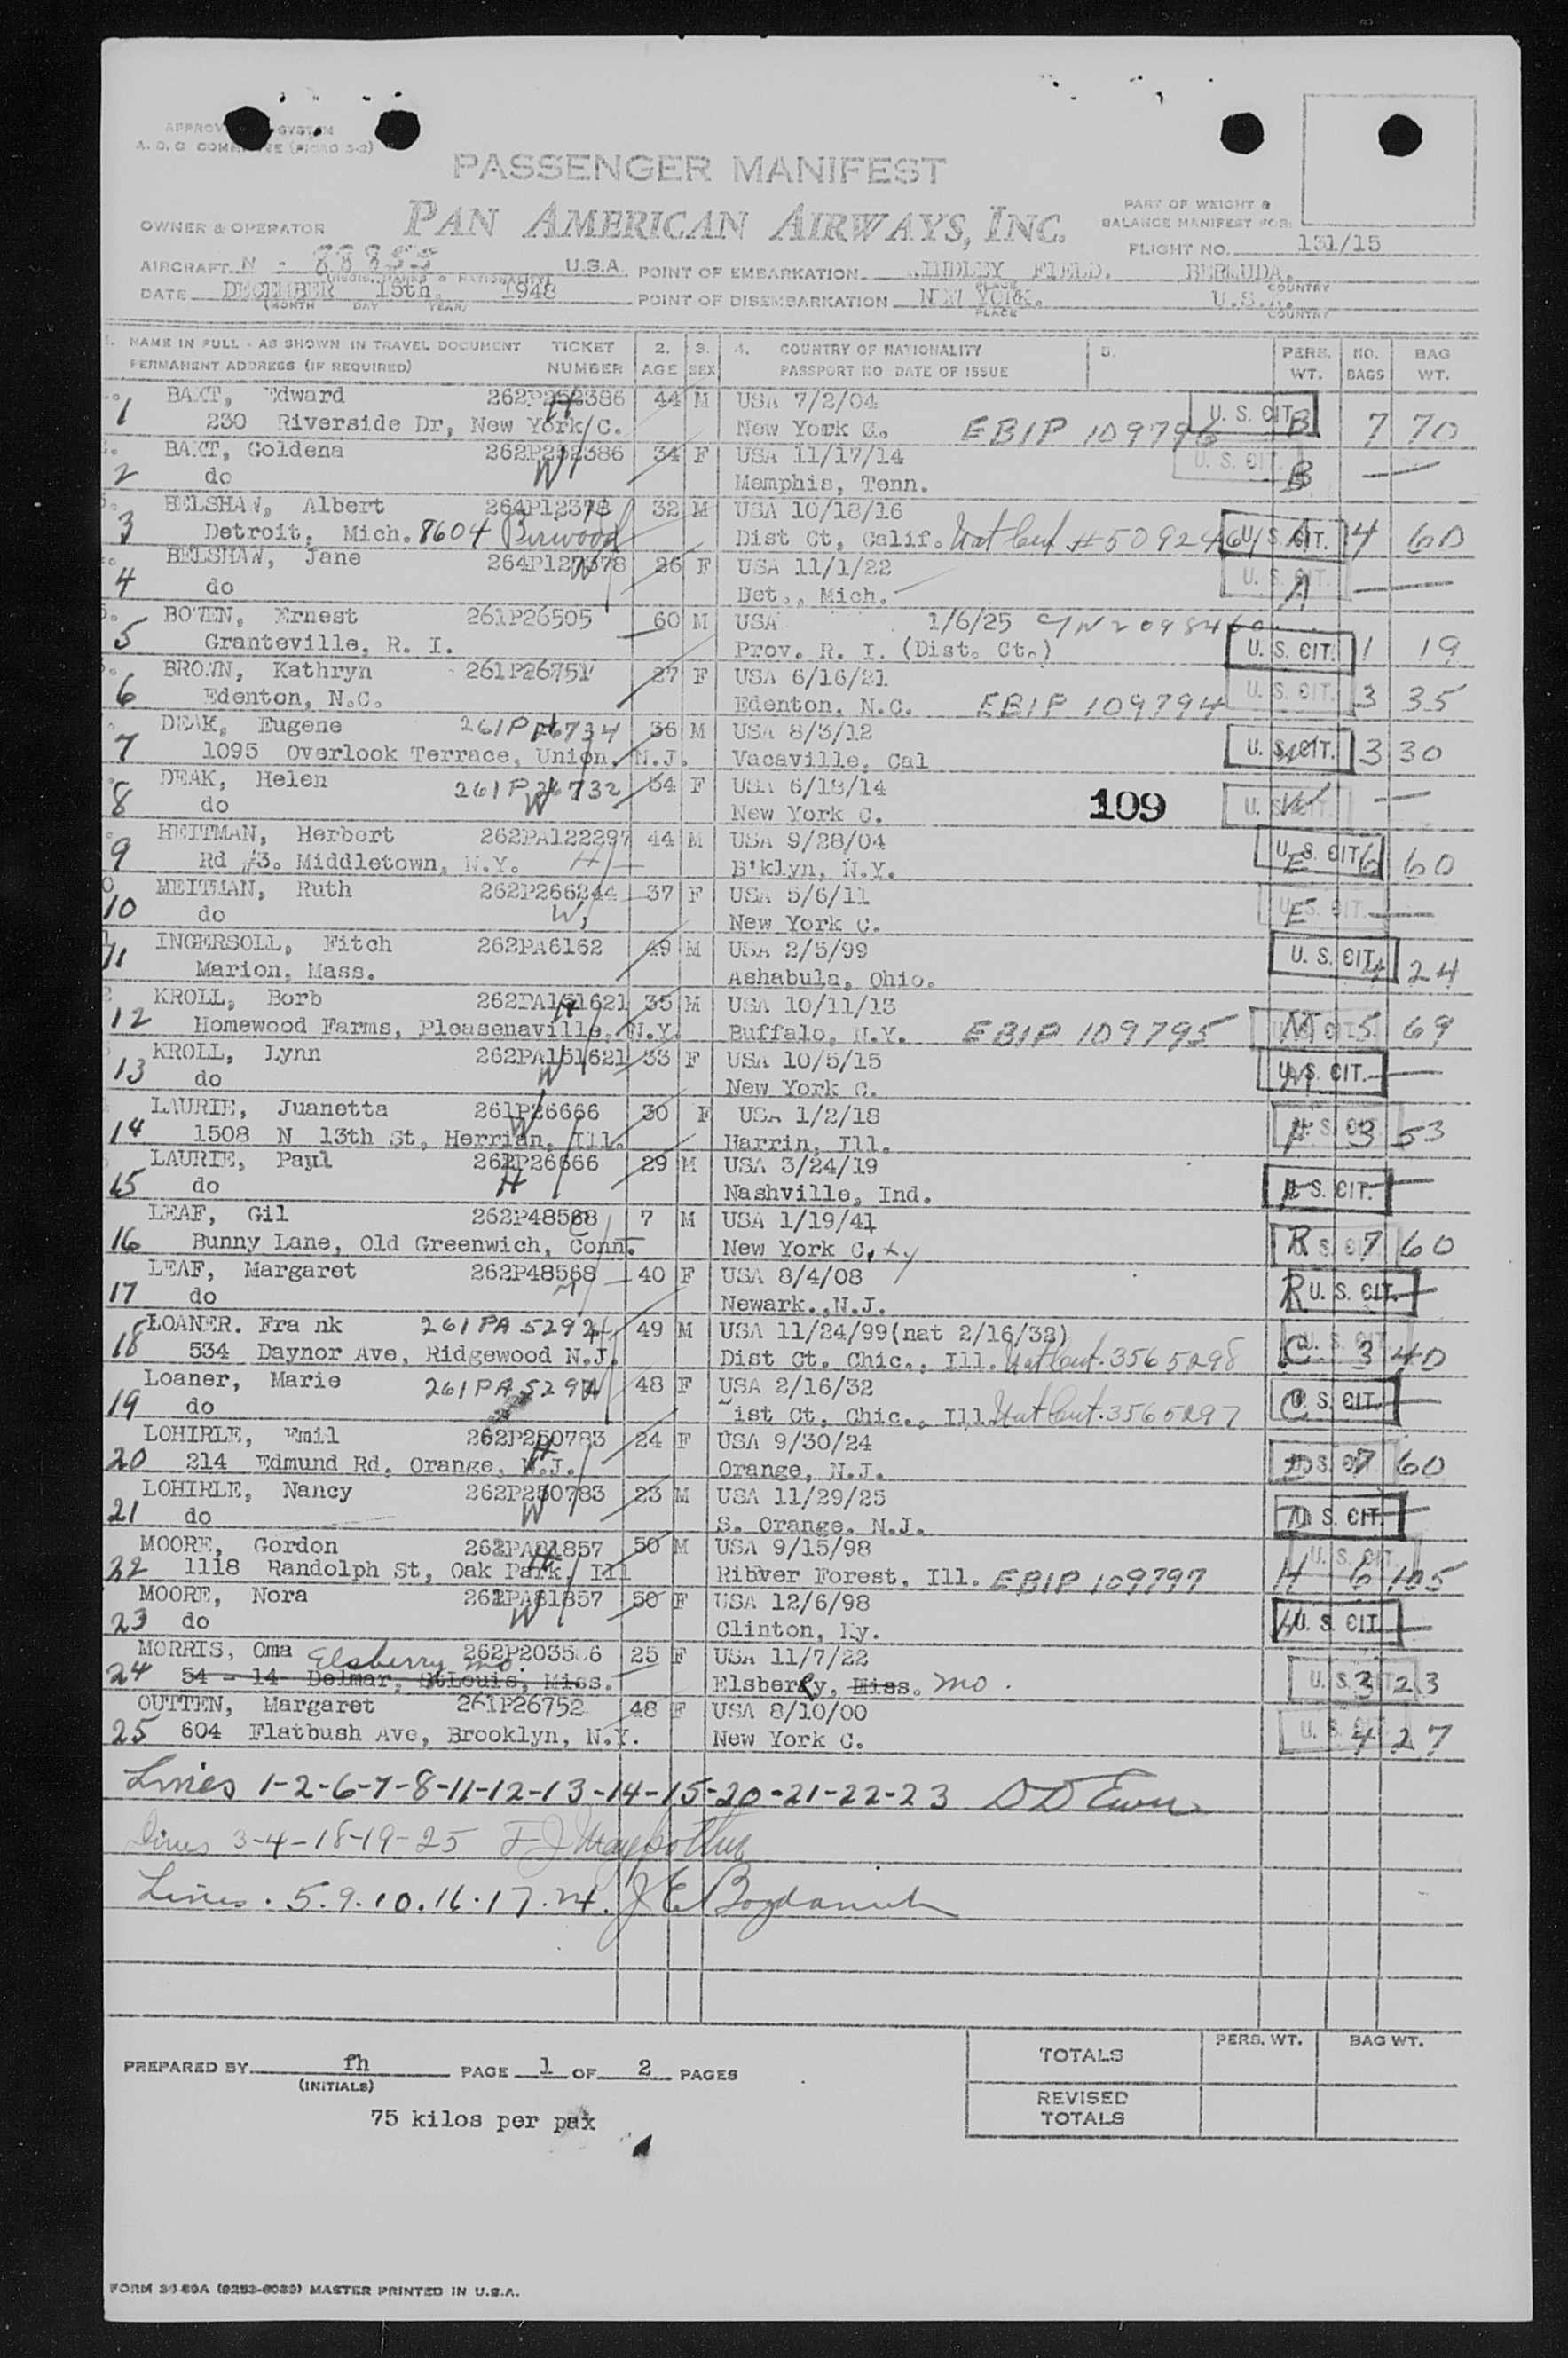 PASSENGER MANIFEST
OWNER & OPERATOR PAN AMERICAN AIRWAYS, INC.
PART OF WEIGHT &
BALANCE MANIFEST FOR:
FLIGHT NO. 131/15
AIRCRAFT N - 88855 U.S.A. POINT OF EMBARKATION FIELD. BERMUDA.
PLACE COUNTRY
DATE DECEMBER 15th 1948 POINT OF DISEMBARKATION NEW YORK. U.S.A.
(MONTH DAY YEAR) PLACE COUNTRY
1. NAME IN FULL - AS SHOWN IN TRAVEL DOCUMENT TICKET 2. 3. 4. COUNTRY OF NATIONALITY 5. PERS. NO. BAG
PERMANENT ADDRESS (IF REQUIRED) NUMBER AGE SEX PASSPORT NO DATE OF ISSUE WT. BAGS WT.
BAXT, Edward 262P252386 44 M USA 7/2/04 U. S. CIT. B 7 70
1 230 Riverside Dr, New York C. New York C. EBIP 109796
BAXT, Goldena 262P252386 34 F USA 11/17/14 U. S. CIT. B —
2 do W Memphis, Tenn.
BELSHAW, Albert 264P12378 32 M USA 10/18/16
3 Detroit, Mich. 8604 Birwood Dist Ct, Calif. Nat Cert #5092464 U. S. CIT. A 4 60
BELSHAW, Jane 264P127378 26 F USA 11/1/22
4 do Det., Mich. U. S. CIT. A —
BOWEN, Ernest 261P26505 60 M USA 1/6/25
5 Granteville, R. I. Prov. R. I. (Dist. Ct.) U. S. CIT. 1 19
BROWN, Kathryn 261P26751 27 F USA 6/16/21
6 Edenton, N.C. Edenton, N.C. EBIP 109794 U. S. CIT. 3 35
DEAK, Eugene 261P26734 36 M USA 8/3/12
7 1095 Overlook Terrace, Union, N.J. Vacaville, Cal U. S. CIT. 3 30
DEAK, Helen 261P26732 34 F USA 6/18/14
8 do W New York C. 109 U. S. CIT. —
HEITMAN, Herbert 262PA122297 44 M USA 9/28/04
9 Rd #3. Middletown, N.Y. H B'klyn, N.Y. U. S. CIT. E 6 60
MEITMAN, Ruth 262P266244 37 F USA 5/6/11
10 do W New York C. U. S. CIT. E —
INGERSOLL, Fitch 262PA6162 49 M USA 2/5/99
11 Marion, Mass. Ashabula, Ohio. U. S. CIT. 24
KROLL, Borb 262PA151621 35 M USA 10/11/13
12 Homewood Farms, Pleasenaville, N.Y. Buffalo, N.Y. EBIP 109795 U. S. CIT. M 5 69
KROLL, Lynn 262PA151621 33 F USA 10/5/15
13 do W New York C. U. S. CIT. M —
LAURIE, Juanetta 261P26666 30 F USA 1/2/18
14 1508 N 13th St, Herrian, Ill. W Harrin, Ill. U. S. CIT. 3 53
LAURIE, Paul 261P26666 29 M USA 3/24/19
15 do H Nashville, Ind. U. S. CIT. —
LEAF, Gil 262P48568 7 M USA 1/19/41
16 Bunny Lane, Old Greenwich, Conn. New York City U. S. CIT. R 7 60
LEAF, Margaret 262P48568 40 F USA 8/4/08
17 do Newark., N.J. R U. S. CIT. —
LOANER. Fra nk 261PA 5292 49 M USA 11/24/99(nat 2/16/32)
18 534 Daynor Ave, Ridgewood N.J. Dist Ct. Chic., Ill. Nat Cert. 3565298 U. S. CIT. C 3 40
Loaner, Marie 261PA 5292 48 F USA 2/16/32
19 do ist Ct, Chic., Ill Nat Cert. 3565297 C U. S. CIT. —
LOHIRLE, Emil 262P250783 24 F USA 9/30/24
20 214 Edmund Rd, Orange, N.J. H Orange, N.J. U. S. CIT. D 7 60
LOHIRLE, Nancy 262P250783 23 M USA 11/29/25
21 do W S. Orange. N.J. D U. S. CIT. —
MOORE, Gordon 261PA81857 50 M USA 9/15/98 U. S. CIT.
22 1118 Randolph St, Oak Park, Ill H Ribver Forest, Ill. EBIP 109797 H 6 105
MOORE, Nora 261PA81857 50 F USA 12/6/98
23 do W Clinton, Ky. H U. S. CIT —
MORRIS, Oma Elsberry mo. 25 F USA 11/7/22
24 54 - 14 Delmar, St Louis, Miss. Elsberry, Miss. mo. U. S. CIT. 3 23
OUTTEN, Margaret 261P26752 48 F USA 8/10/00
25 604 Flatbush Ave, Brooklyn, N.Y. New York C. U. S. CIT. 4 27
Lines 1-2-6-7-8-11-12-13-14-15-20-21-22-23
Lines 3-4-18-19-25
Lines. 5.9.10.16.17.24. J E
PREPARED BY fh PAGE 1 OF 2 PAGES
(INITIALS)
75 kilos per pax
PERS. WT. BAG WT.
TOTALS
REVISED
TOTALS
FORM MASTER PRINTED IN U.S.A.